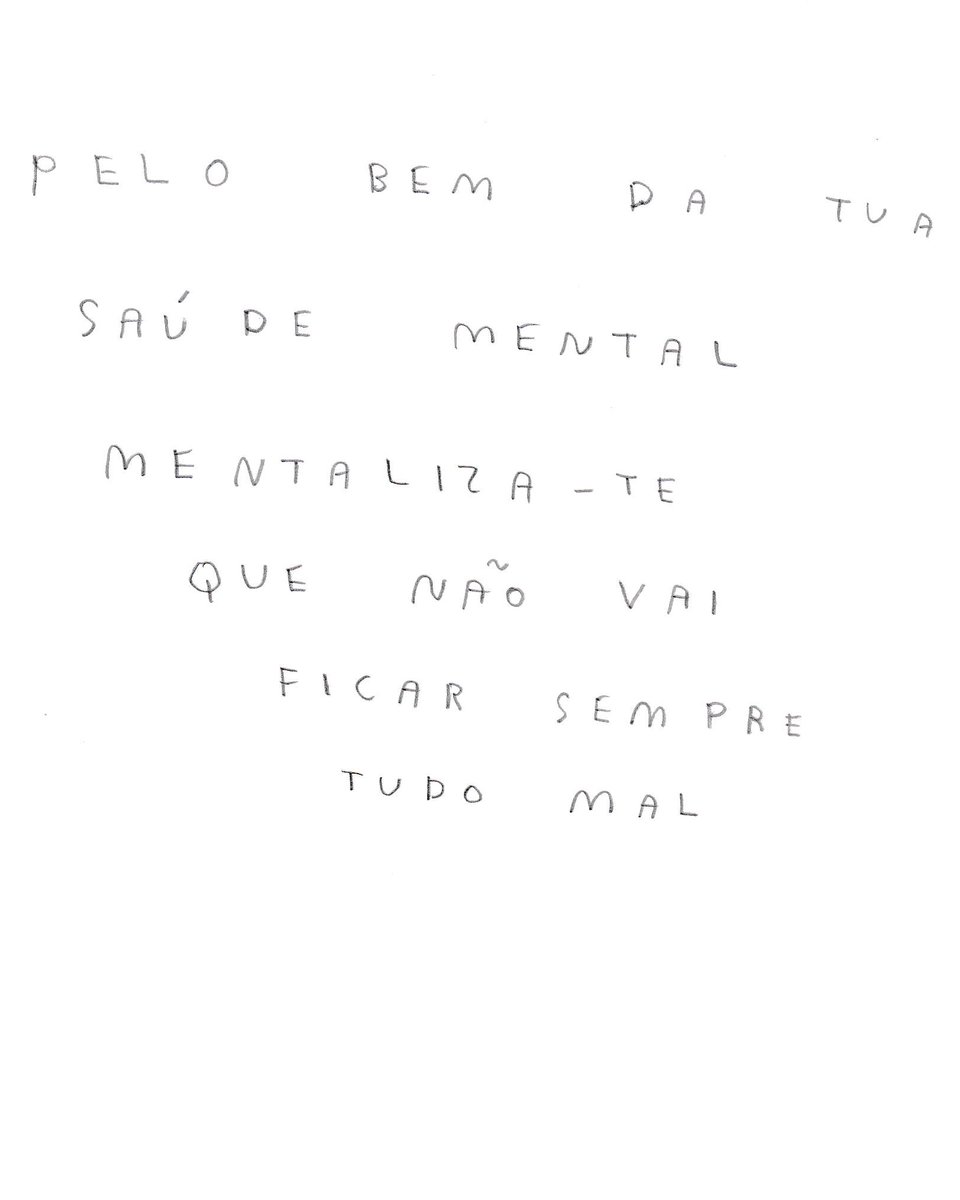 PELO BEM DA TUA
SAÚDE MENTAL
MENTALIZA-TE
QUE NÃO VAI
FICAR SEMPRE
TUDO MAL